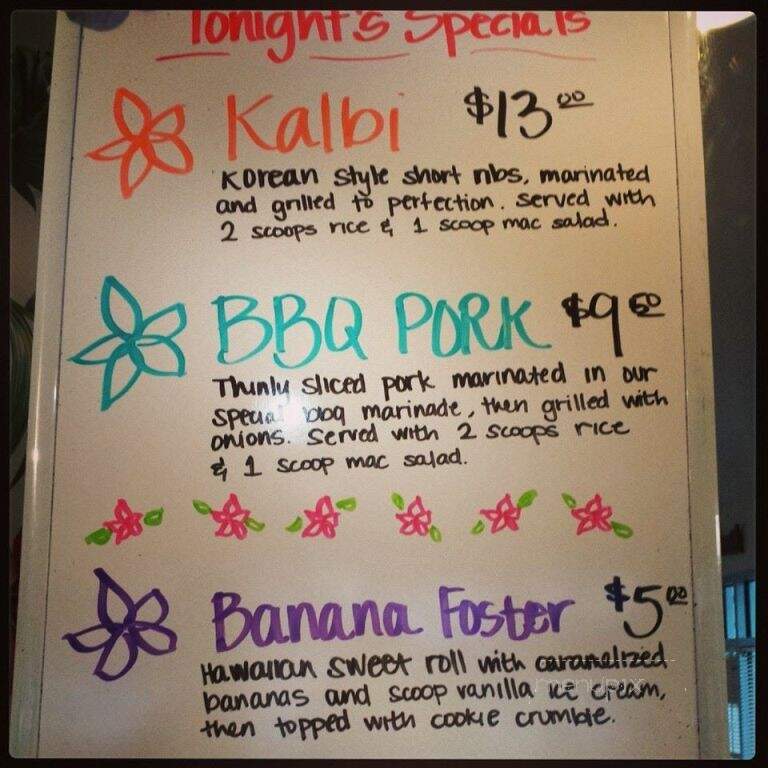 Tonight's Specials
Kalbi $13.00
Korean style short ribs, marinated
and grilled to perfection. Served with
2 scoops rice & 1 scoop mac salad.
BBQ PORK $9.50
Thinly sliced pork marinated in our
special bbq marinade, then grilled with
onions. Served with 2 scoops rice
& 1 scoop mac salad.
Banana Foster $5.00
Hawaiian sweet roll with caramelized
bananas and scoop vanilla ice cream,
then topped with cookie crumble.
menupix